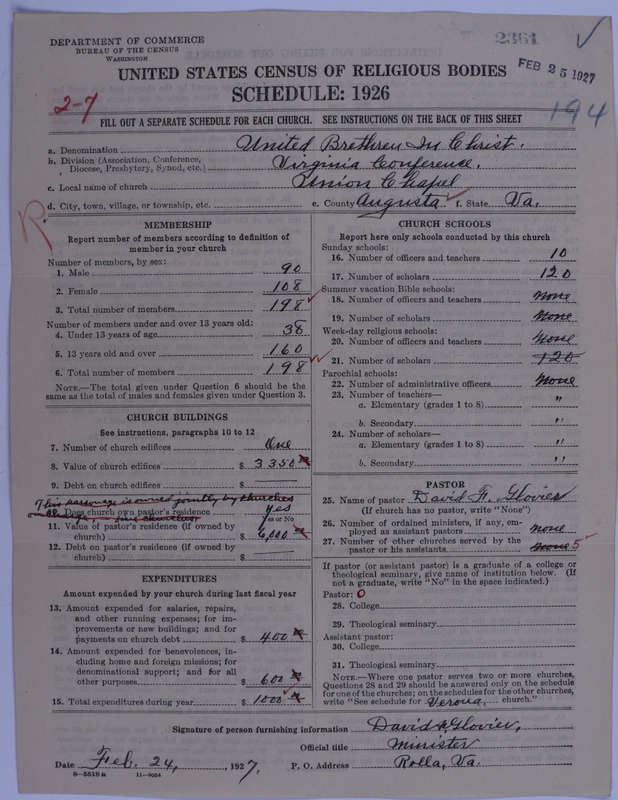 2361
DEPARTMENT OF COMMERCE
BUREAU OF THE CENSUS
WASHINGTON
FEB 25 1927
UNITED STATES CENSUS OF RELIGIOUS BODIES
SCHEDULE: 1926
2-7
194
FILL OUT A SEPARATE SCHEDULE FOR EACH CHURCH. SEE INSTRUCTIONS ON THE BACK OF THIS SHEET
a. Denomination United Brethren In Christ.
b. Division (Association, Conference, Diocese, Presbytery, Synod, etc.) Virginia Conference.
c. Local name of church Union Chapel
d. City, town, village, or township, etc. e. County Augusta f. State Va.
R
MEMBERSHIP
Report number of members according to definition of
member in your church
Number of members, by sex:
1. Male 90
2. Female 108
3. Total number of members 198
Number of members under and over 13 years old:
4. Under 13 years of age 38
5. 13 years old and over 160
6. Total number of members 198
NOTE.—The total given under Question 6 should be
same as the total of males and females given under Question 3.
CHURCH BUILDINGS
See instructions, paragraphs 10 to 12
7. Number of church edifices One
8. Value of church edifices $ 3350
9. Debt on church edifices $
This parsonage is owned jointly by churches
10. Does church own pastor's residence yes
Yes or No
11. Value of pastor's residence (if owned by
church) $ 6,000
12. Debt on pastor's residence (if owned by
church) $
EXPENDITURES
Amount expended by your church during last fiscal year
13. Amount expended for salaries, repairs,
and other running expenses; for im-
provements or new buildings; and for
payments on church debt $ 400
14. Amount expended for benevolences, in-
cluding home and foreign missions; for
denominational support; and for all
other purposes $ 600
15. Total expenditures during year $ 1000
CHURCH SCHOOLS
Report here only schools conducted by this church
Sunday schools:
16. Number of officers and teachers 10
17. Number of scholars 120
Summer vacation Bible schools:
18. Number of officers and teachers None
19. Number of scholars None
Week-day religious schools:
20. Number of officers and teachers None
21. Number of scholars 120
Parochial schools:
22. Number of administrative officers None
23. Number of teachers—
a. Elementary (grades 1 to 8) "
b. Secondary "
24. Number of scholars—
a. Elementary (grades 1 to 8) "
b. Secondary "
PASTOR
25. Name of pastor David F. Glovier
(If church has no pastor, write "None")
26. Number of ordained ministers, if any, em-
ployed as assistant pastors none
27. Number of other churches served by the
pastor or his assistants none 5
If pastor (or assistant pastor) is a graduate of a college or
theological seminary, give name of institution below. (If
not a graduate, write "No" in the space indicated.)
Pastor: O
28. College
29. Theological seminary
Assistant pastor:
30. College
31. Theological seminary
NOTE.—Where one pastor serves two or more churches,
Questions 28 and 29 should be answered only on the schedule
for one of the churches; on the schedules for the other churches,
write "See schedule for Verona, church."
Signature of person furnishing information David F. Glovier,
Official title Minister
Date Feb. 24, 1927. P. O. Address Rolla, Va.
8—5518a 11—9024